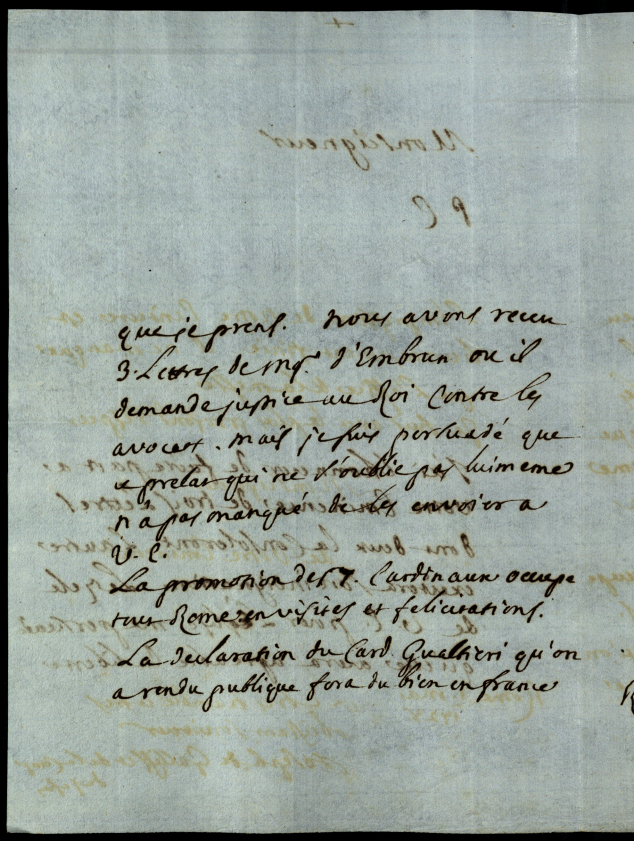 que je prens. Nous avons receu
3. Lettres de mgr. d'Embrun ou il
demande justice au Roi Contre les
avocats. mais je suis persuadé que
ce prelat qui ne s'oublie pas luimeme
n a pas manqué de les envoier a
V. E.
La promotion des 7. Cardinaux occupe
tout Rome en visites et felicitations.
La declaration du Card. Gualtieri qu'on
a rendu publique fera du bien en france